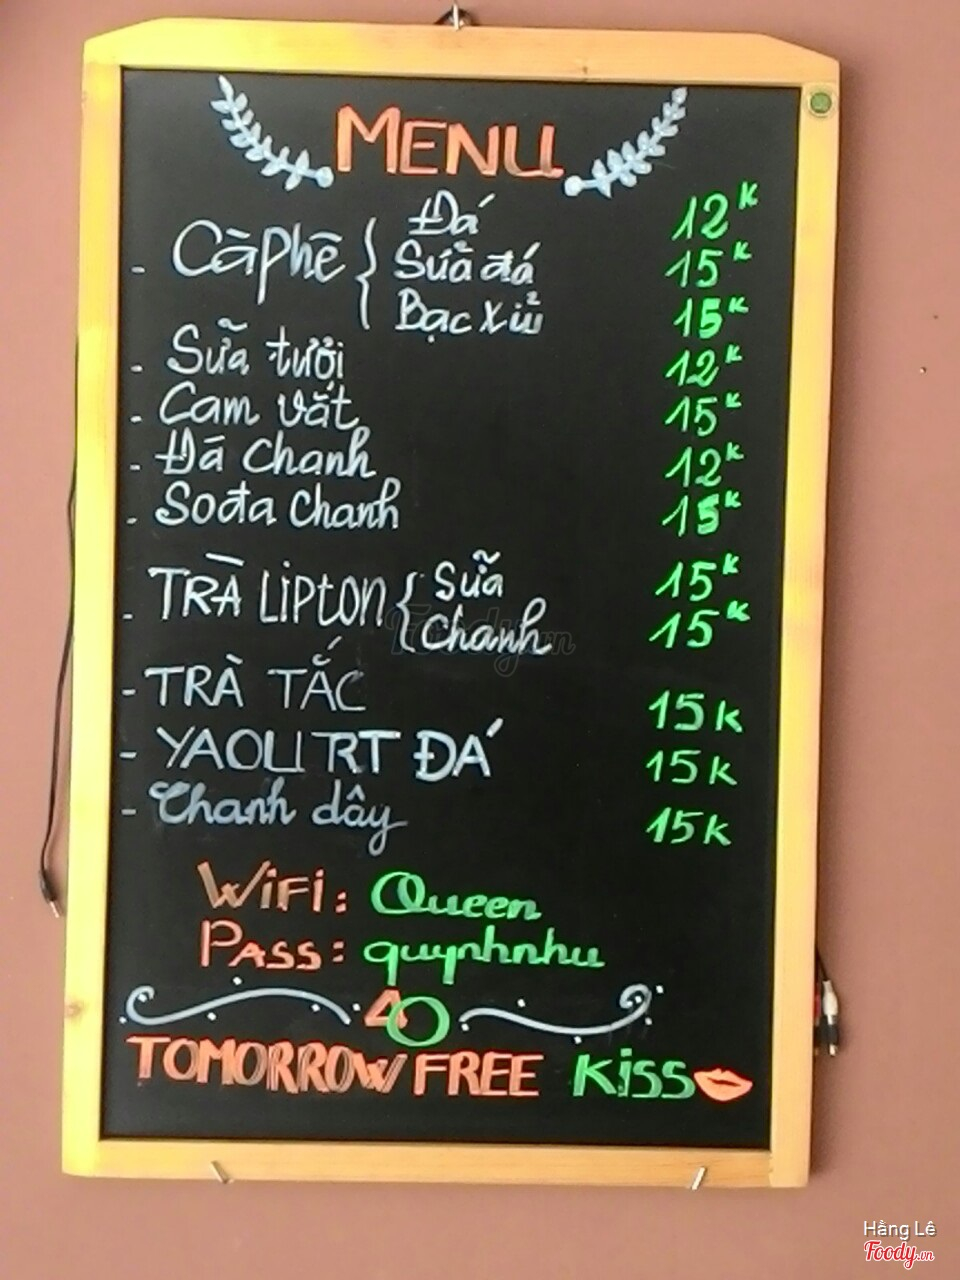 MENU
- Càphê { Đá 12K
Sữa đá 15K
Bạc xỉu 15K
- Sữa tươi 12K
- Cam vắt 15K
- Đá Chanh 12K
- Sođa Chanh 15K
- TRÀ LiptON { Sữa 15K
Chanh 15K
- TRÀ TẮC 15K
- YAOURT ĐÁ 15K
- Chanh dây 15K
WiFi: Queen
PASS: quynhnhu
TOMORROW FREE KiSS
Foody.vn
Hằng Lê
Foody.vn